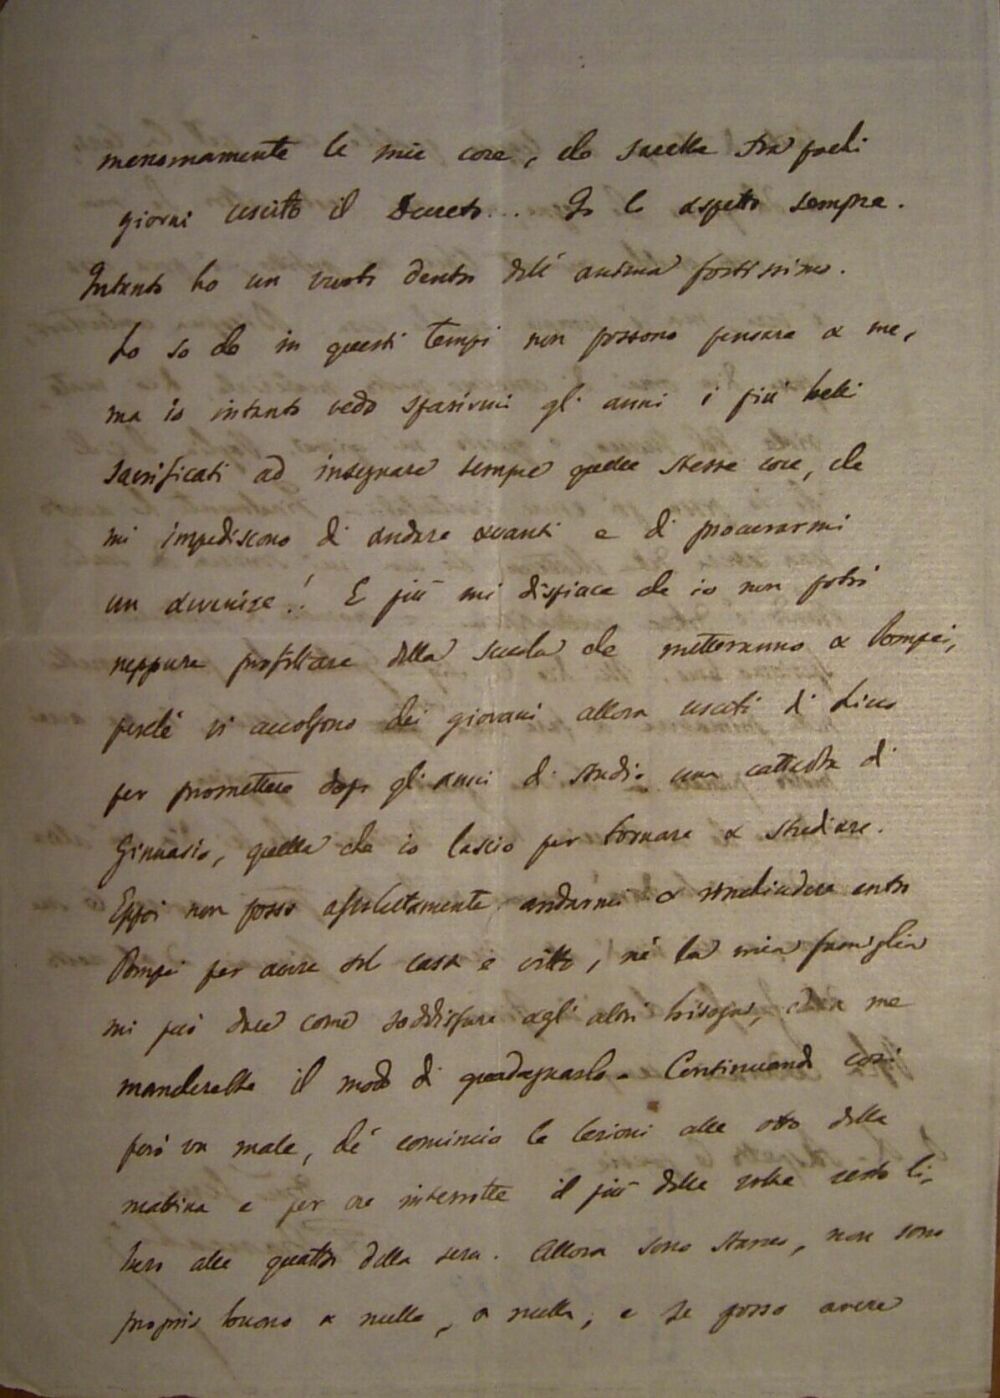 menomamente le mie cose, che sarebbe tra pochi
giorni uscito il Decreto... Io lo aspetto sempre.
Intanto ho un vuoto dentro dell'anima fortissimo.
Lo so che in questi tempi non possono pensare a me,
ma io intanto vedo sparirmi gli anni i più belli
sacrificati ad insegnare sempre quelle stesse cose, che
mi impediscono di andare avanti e di procurarmi
un avvenire! E più mi dispiace che io non potrò
neppure profittare della scuola che metteranno a Pompei,
perchè vi accolgono dei giovani allora usciti di Liceo
per promettere dopo gli anni di studio una cattedra di
Ginnasio, quella che io lascio per tornare a studiare.
Eppoi non posso assolutamente andarmi a rinchiudere entro
Pompei per avere sol casa e vitto, nè la mia famiglia
mi può dare come soddisfare agli altri bisogni, e a me
mancherebbe il modo di guadagnarlo. Continuando così
però va male, chè comincio le lezioni alle otto della
mattina e per ore interrotte il più delle volte resto li-
bero alle quattro della sera. Allora sono stanco, non sono
proprio buono a nulla, a nulla; e se posso avere